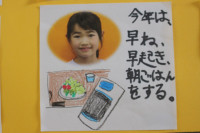 今年は、
早ね、
早起き、
朝ごはん
をする。